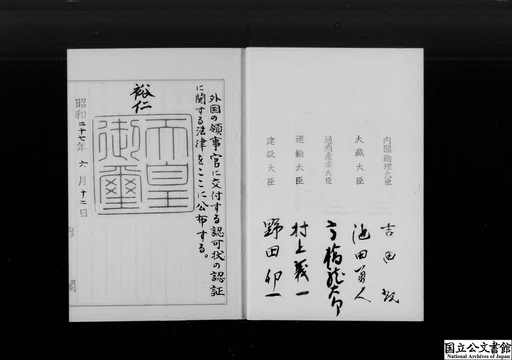 内閣総理大臣 吉田茂
大蔵大臣 池田勇人
通商産業大臣 高橋龍太郎
運輸大臣 村上義一
建設大臣 野田卯一
外国の領事官に交付する認可状の認証
に関する法律をここに公布する。
裕仁
天皇
御璽
昭和二十七年 六月十二日
内閣
国立公文書館
National Archives of Japan